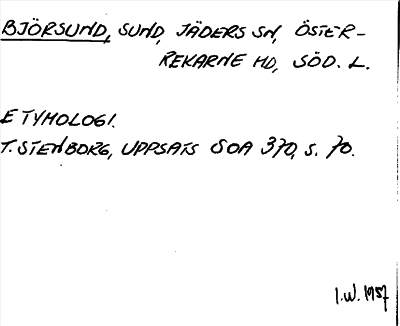 BJÖRSUND, SUND, JÄDERS SN, ÖSTER-
REKARNE HD, SÖD. L.
ETYMOLOGI.
T. STENBORG, UPPSATS SOA 370, S. 70.
I.W. 1957